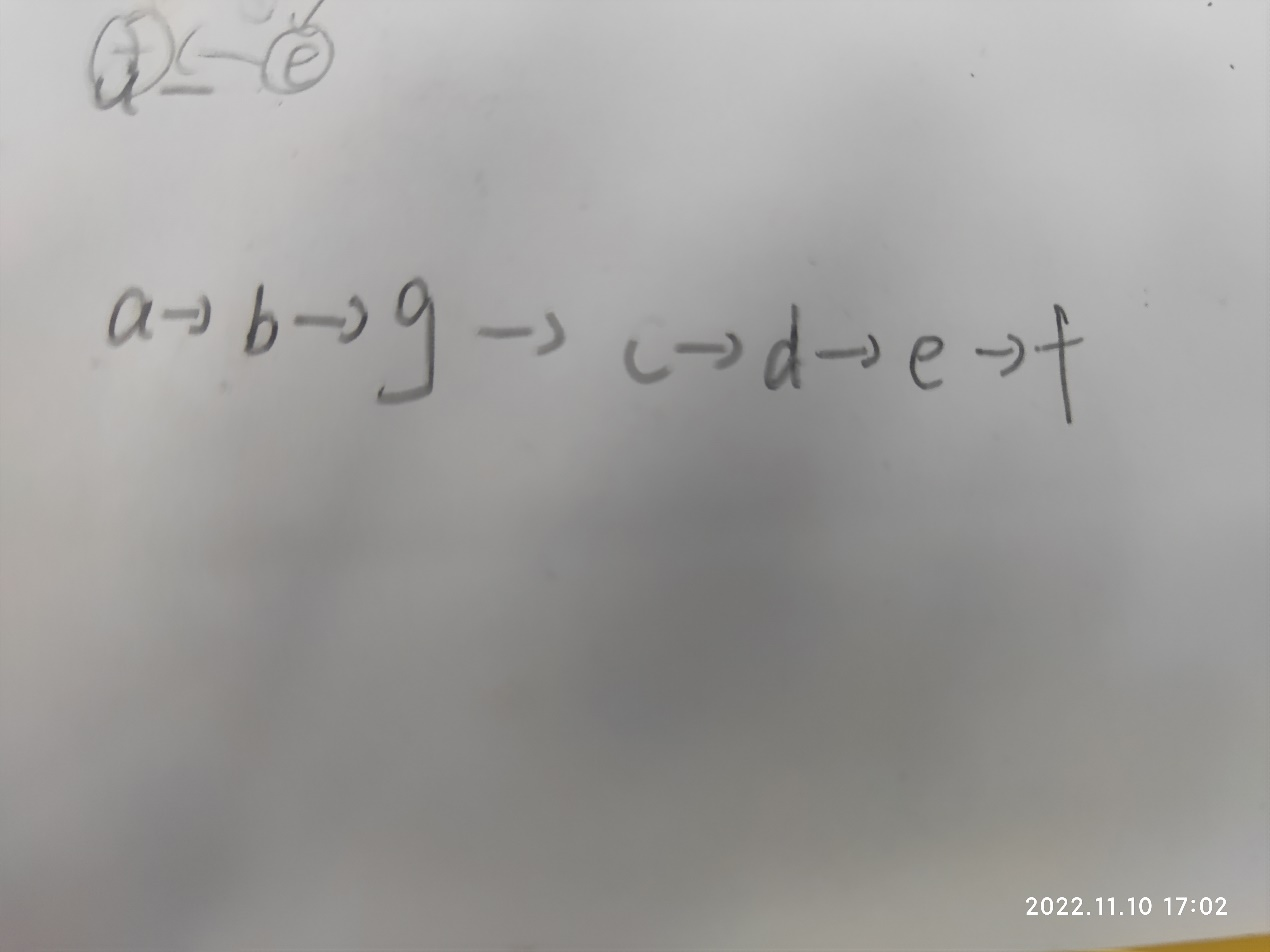 f ← e
a → b → g → c → d → e → f
2022.11.10 17:02